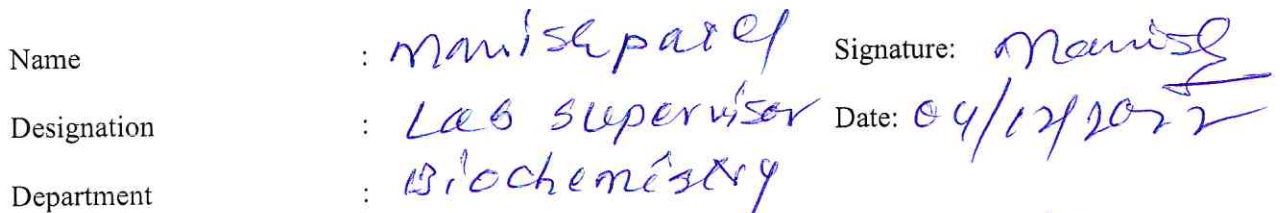 Name : Manish patel Signature: Manish
Designation : Lab supervisor Date: 04/12/2022
Department : Biochemistry